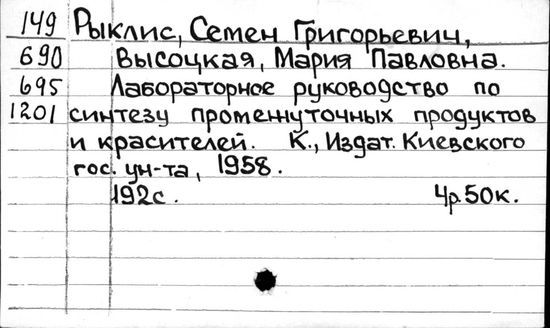 149 Рыклис, Семен Григорьевич,
690 Высоцкая, Мария Павловна.
695 Лабораторное руководство по
1201 синтезу промежуточных продуктов
и красителей. К., Издат. Киевского
гос. ун-та, 1958.
192с. 4р.50к.